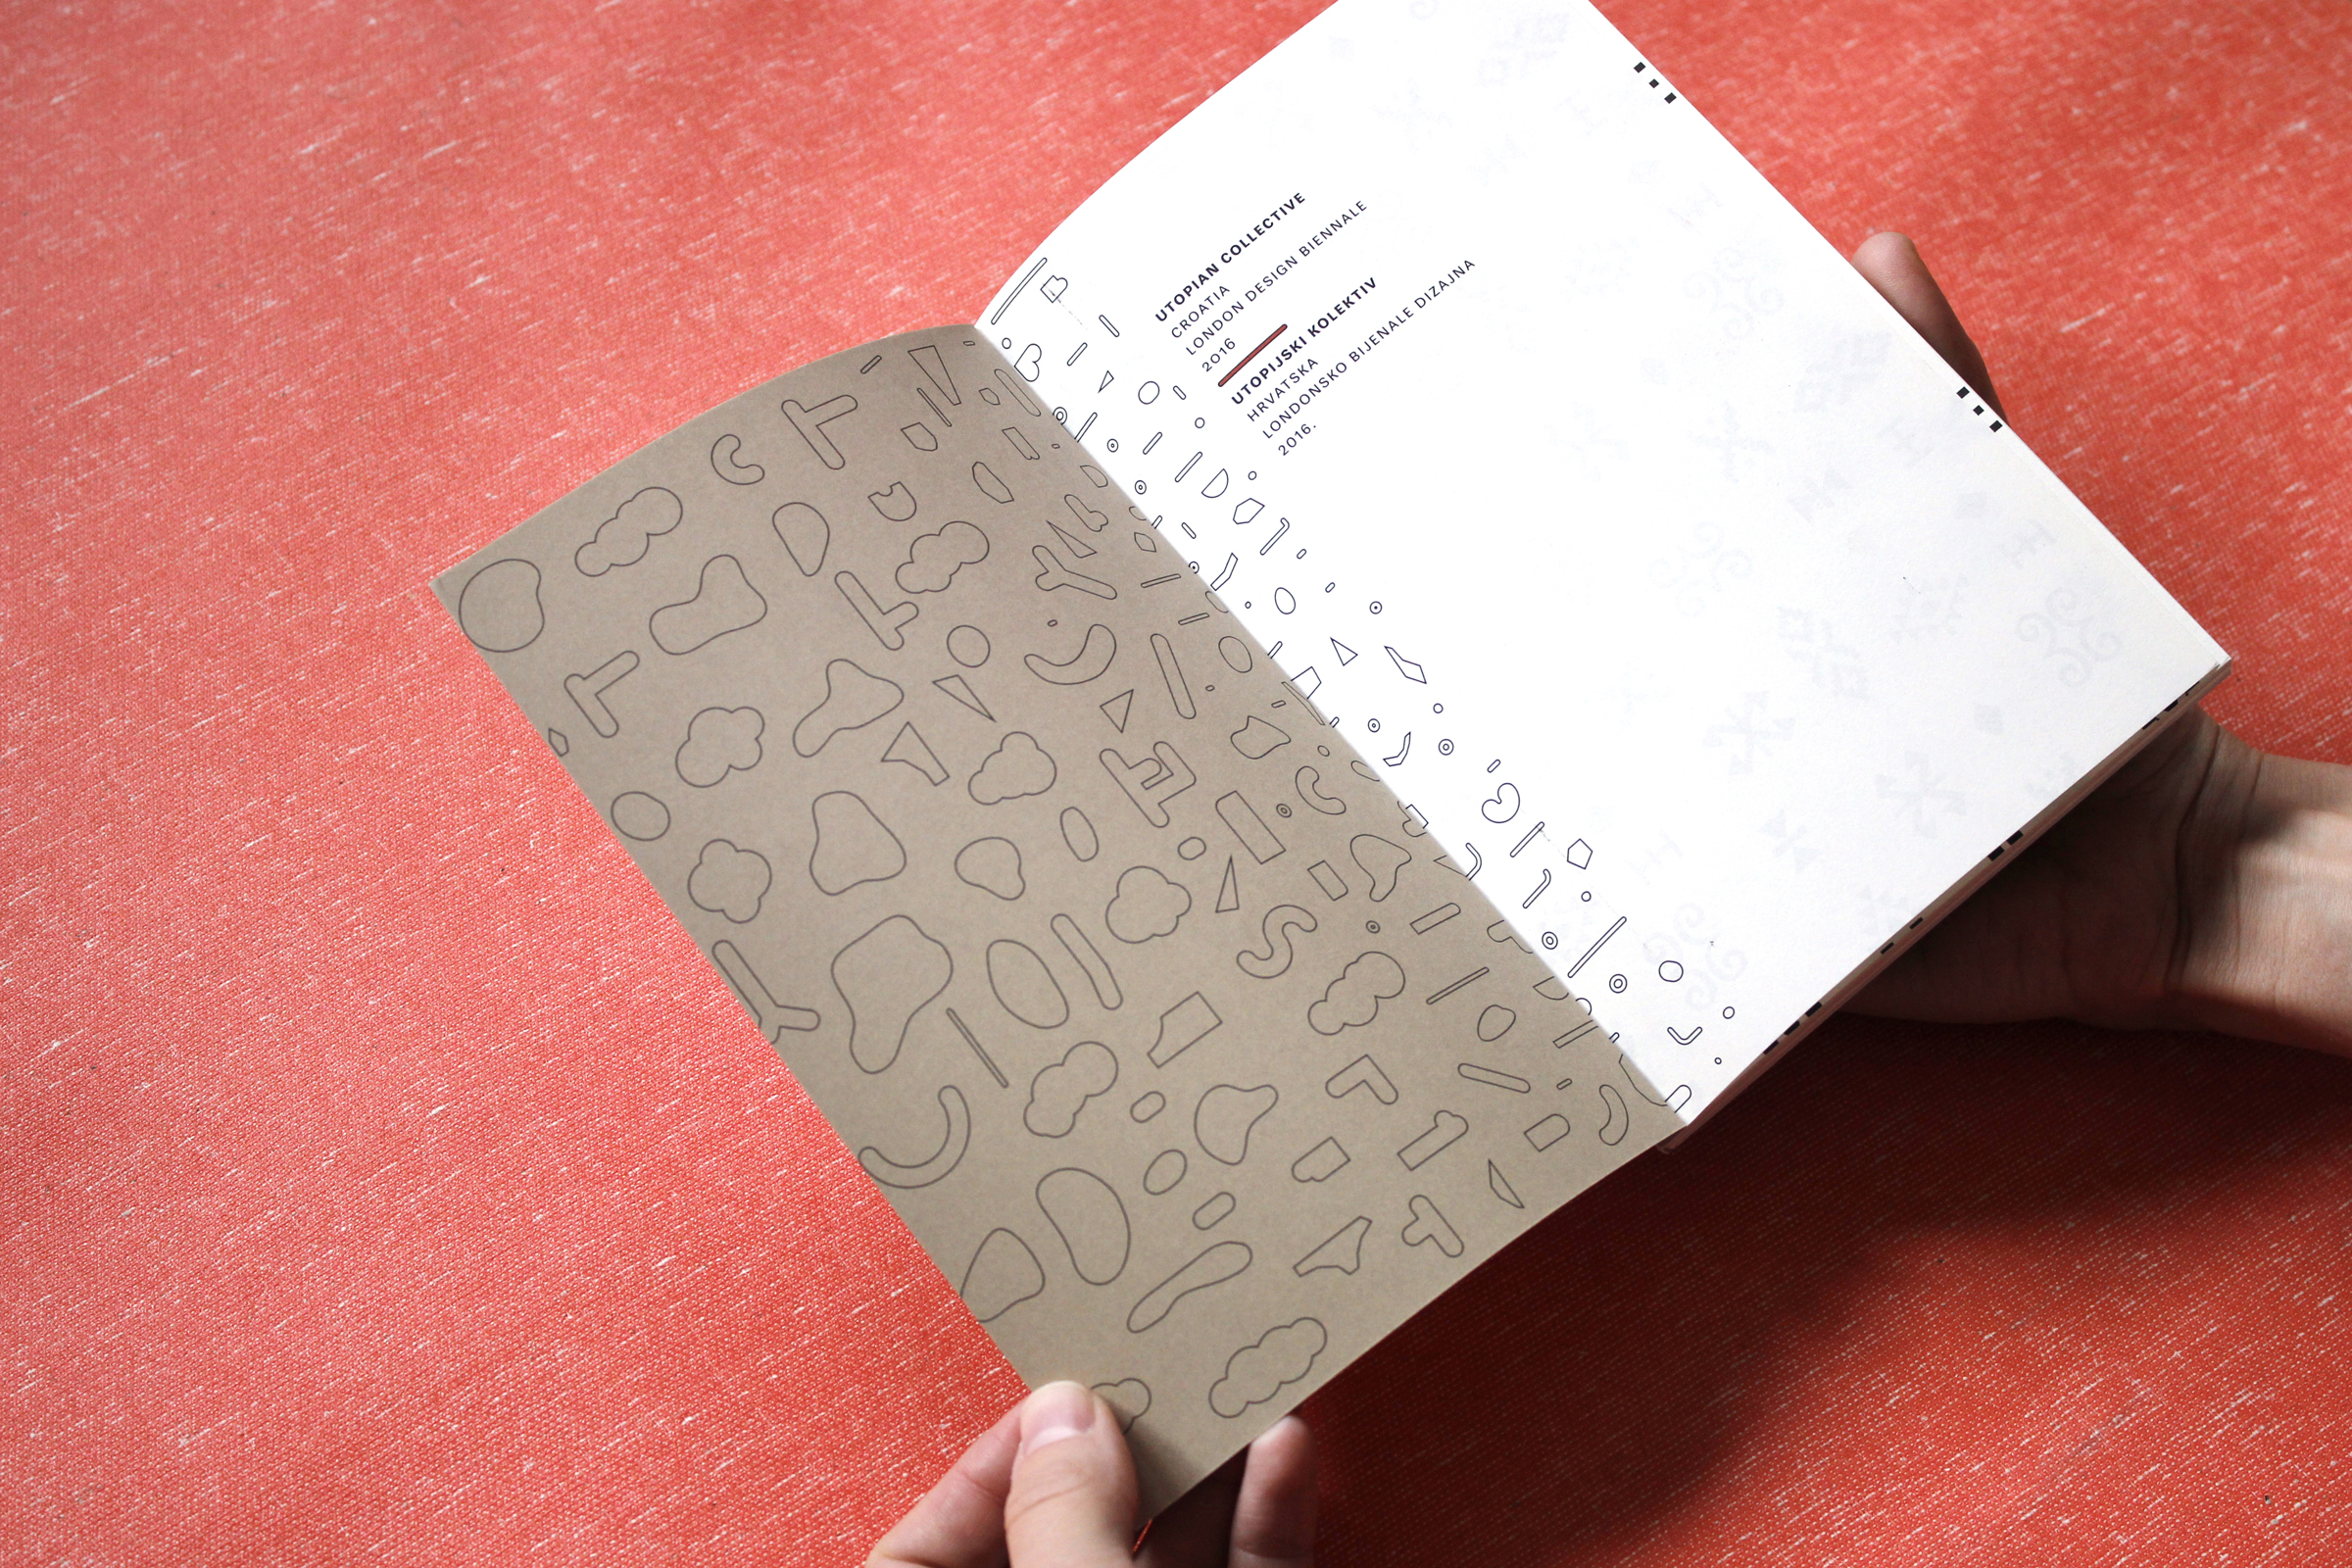 UTOPIAN COLLECTIVE
CROATIA
LONDON DESIGN BIENNALE
2016
UTOPIJSKI KOLEKTIV
HRVATSKA
LONDONSKO BIJENALE DIZAJNA
2016.